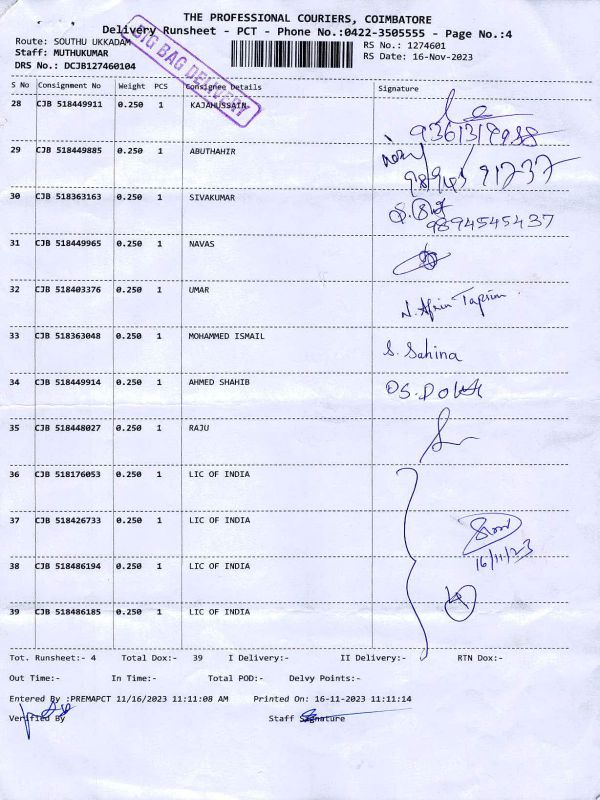 THE PROFESSIONAL COURIERS, COIMBATORE
Delivery Runsheet - PCT - Phone No.:0422-3505555 - Page No.:4
Route: SOUTHU UKKADAM
RS No.: 1274601
Staff: MUTHUKUMAR
RS Date: 16-Nov-2023
DRS No.: DCJB127460104
BIG BAG DELIVERY
S No Consignment No Weight PCS Consignee Details Signature
28 CJB 518449911 0.250 1 KAJAHUSSAIN
29 CJB 518449885 0.250 1 ABUTHAHIR
30 CJB 518363163 0.250 1 SIVAKUMAR
9894545437
31 CJB 518449965 0.250 1 NAVAS
32 CJB 518403376 0.250 1 UMAR
33 CJB 518363048 0.250 1 MOHAMMED ISMAIL
S. Sahina
34 CJB 518449914 0.250 1 AHMED SHAHIB
35 CJB 518448027 0.250 1 RAJU
36 CJB 518176053 0.250 1 LIC OF INDIA
37 CJB 518426733 0.250 1 LIC OF INDIA
16/11/23
38 CJB 518486194 0.250 1 LIC OF INDIA
39 CJB 518486185 0.250 1 LIC OF INDIA
Tot. Runsheet:- 4 Total Dox:- 39 I Delivery:- II Delivery:- RTN Dox:-
Out Time:- In Time:- Total POD:- Delvy Points:-
Entered By :PREMAPCT 11/16/2023 11:11:08 AM Printed On: 16-11-2023 11:11:14
Verified By Staff Signature